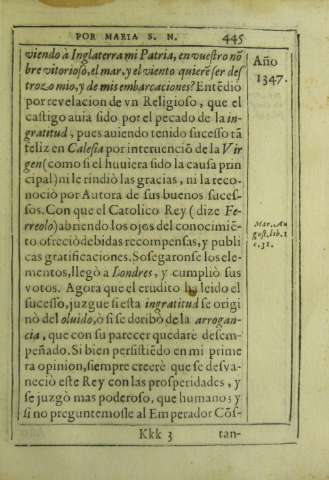 POR MARIA S. N. 445
viendo à Inglaterra mi Patria, en vuestro nõ
bre vitorioso, el mar, y el viento quierẽ ser des
trozo mio, y de mis embarcaciones? Entẽdiò
por revelacion de vn Religioso, que el
castigo auia sido por el pecado de la in-
gratitud, pues auiendo tenido sucesso tã
feliz en Calesia por interuenciõ de la Vir
gen (como si el huuiera sido la causa prin
cipal) ni le rindiò las gracias, ni la reco-
nociò por Autora de sus buenos suces-
sos. Con que el Catolico Rey (dize Fe-
rreolo) abriendo los ojos del conocimiẽ-
to ofreciò debidas recompensas, y publi
cas gratificaciones. Sosegaronse los ele-
mentos, llegò a Londres, y cumpliò sus
votos. Agora que el erudito ha leido el
sucesso, juzgue si esta ingratitud se origi
nò del oluido, ò si se deribò de la arrogan-
cia, que con su parecer quedarè desem-
peñado. Si bien persistiẽdo en mi prime
ra opinion, siempre creerè que se desva-
neciò este Rey con las prosperidades, y
se juzgò mas poderoso, que humano; y
si no preguntemosle al Emperador Cõs-
Kkk 3 tan-
Año
1347.
Mar. Au
gust. lib. 1
c. 31.